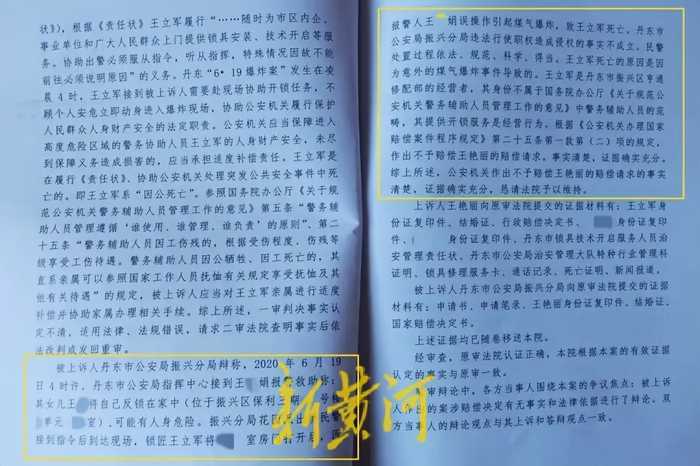 款，根据《责任状》王立军履行“……随时为市区内企、
事业单位和广大人民群众上门提供锁具安装、技术开启等服
务。协助出警必须服从指挥，听从指挥，特殊情况因故不能
前往必须说明原因”的义务。丹东“6·19爆炸案”发生在凌
晨4时，王立军接到被上诉人需要赴现场协助开锁任务，不
顾个人安危立即动身进入爆炸现场，协助公安机关履行保护
人民群众人身财产安全的法定职责。公安机关应当保障进入
高度危险区域的警务协助人员王立军的人身财产安全，未尽
到保障义务造成损害的，应当承担适度补偿责任。王立军是
在履行《责任状》、协助公安机关处理突发公共安全事件中死
亡的。即王立军系“因公死亡”。参照国务院办公厅《关于规
范公安机关警务辅助人员管理工作的意见》第五条“警务辅
助人员管理遵循‘谁使用、谁管理、谁负责’的原则”、第二
十五条“警务辅助人员因工伤残的，根据受伤程度、伤残等
级享受工伤待遇。警务辅助人员因公牺牲、因工死亡的，其
直系亲属可以参照国家工作人员抚恤有关规定享受抚恤及其
他有关待遇”的规定，被上诉人应当对王立军亲属进行适度
补偿并协助家属办理相关手续。综上所述，一审判决事实认
定不清，适用法律、法规错误，请求二审法院查明事实后依
法改判或发回重审。
被上诉人丹东市公安局振兴分局辩称，2020年6月19
日4时许，丹东市公安局指挥中心接到王 娟报警救助称：
其女儿王 将自己反锁在家中（位于振兴区保利三期 号楼
单元 室），可能有人身危险。振兴分局花园
接到指令后到达现场，锁匠王立军将 室房门打开后，
报警人王 娟误操作引起煤气爆炸，致王立军死亡。丹东市
公安局振兴分局违法行使职权造成侵权的事实不成立。民警
处置过程依法、规范、科学、得当。王立军死亡的原因是因
为意外的煤气爆炸事件导致的。王立军是丹东市振兴区亨通
修配部的经营者，其身份不属于国务院办公厅《关于规范公
安机关警务辅助人员管理工作的意见》中警务辅助人员的范
畴，其提供开锁服务是经营行为。根据《公安机关办理国家
赔偿案件程序规定》第二十五条第一款第（二）项的规定，
作出不予赔偿王艳丽的赔偿请求。事实清楚，证据确实充分。
综上所述，公安机关作出不予赔偿王艳丽的赔偿请求的事实
清楚，证据确实充分，恳请法院予以维持。
上诉人王艳丽向原审法院提交的证据材料有：王立军身
份证复印件、结婚证、行政赔偿决定书、 身份证复印
件、 身份证复印件、丹东市锁具技术开启服务人员治
安管理责任状、丹东市公安局治安管理大队特种行业管理科
证明、锁具修理服务卡、通话记录、死亡证明、新闻报道。
被上诉人丹东市公安局振兴分局向原审法院提交的证据
材料有：申请书、申请笔录、王艳丽身份证复印件、结婚证、
国家赔偿决定书。
上述证据均已随卷移送本院。
经审查，原审法院认证正确，本院根据本案的有效证据
认定的事实与原审一致。
审辩论中，各方当事人围绕本案的争议焦点：被上诉
人作出的案涉赔偿决定有无事实和法律依据进行了辩论，双
方当事人的辩论观点与其上诉和答辩观点一致。
新黄河